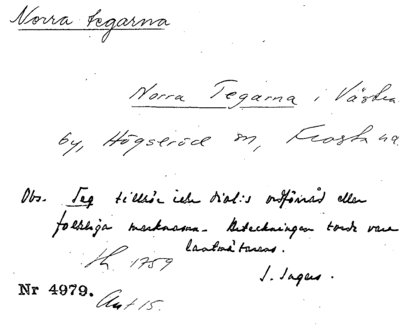 Norra tegarna
Norra Tegarna i Västra
by, Högseröd sn, Frosta hd
Obs. Teg tillhör icke dial:s ordförråd eller
folkliga marknamn. Beteckningen torde vara
lantmätarens.
1759
I. Ingers.
Nr 4979.
Akt 15.